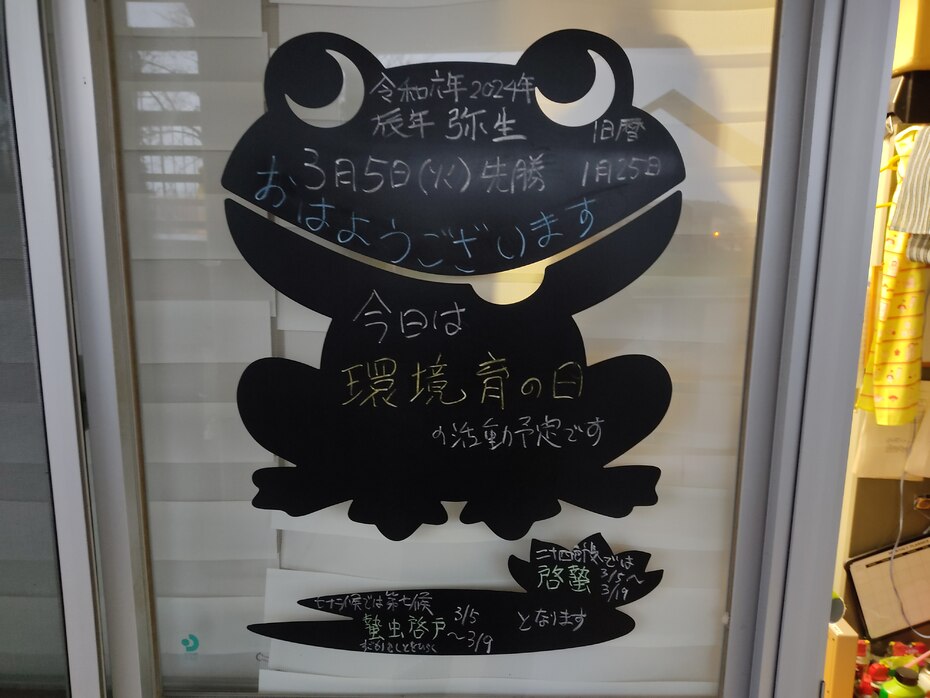 令和六年2024年
辰年 弥生
旧暦
3月5日(火)先勝
1月25日
おはようございます
今日は
環境育の日
の活動予定です
二十四節気では
啓蟄 3/5〜3/19
七十二候では第七候
蟄虫啓戸 3/5〜3/9
となります